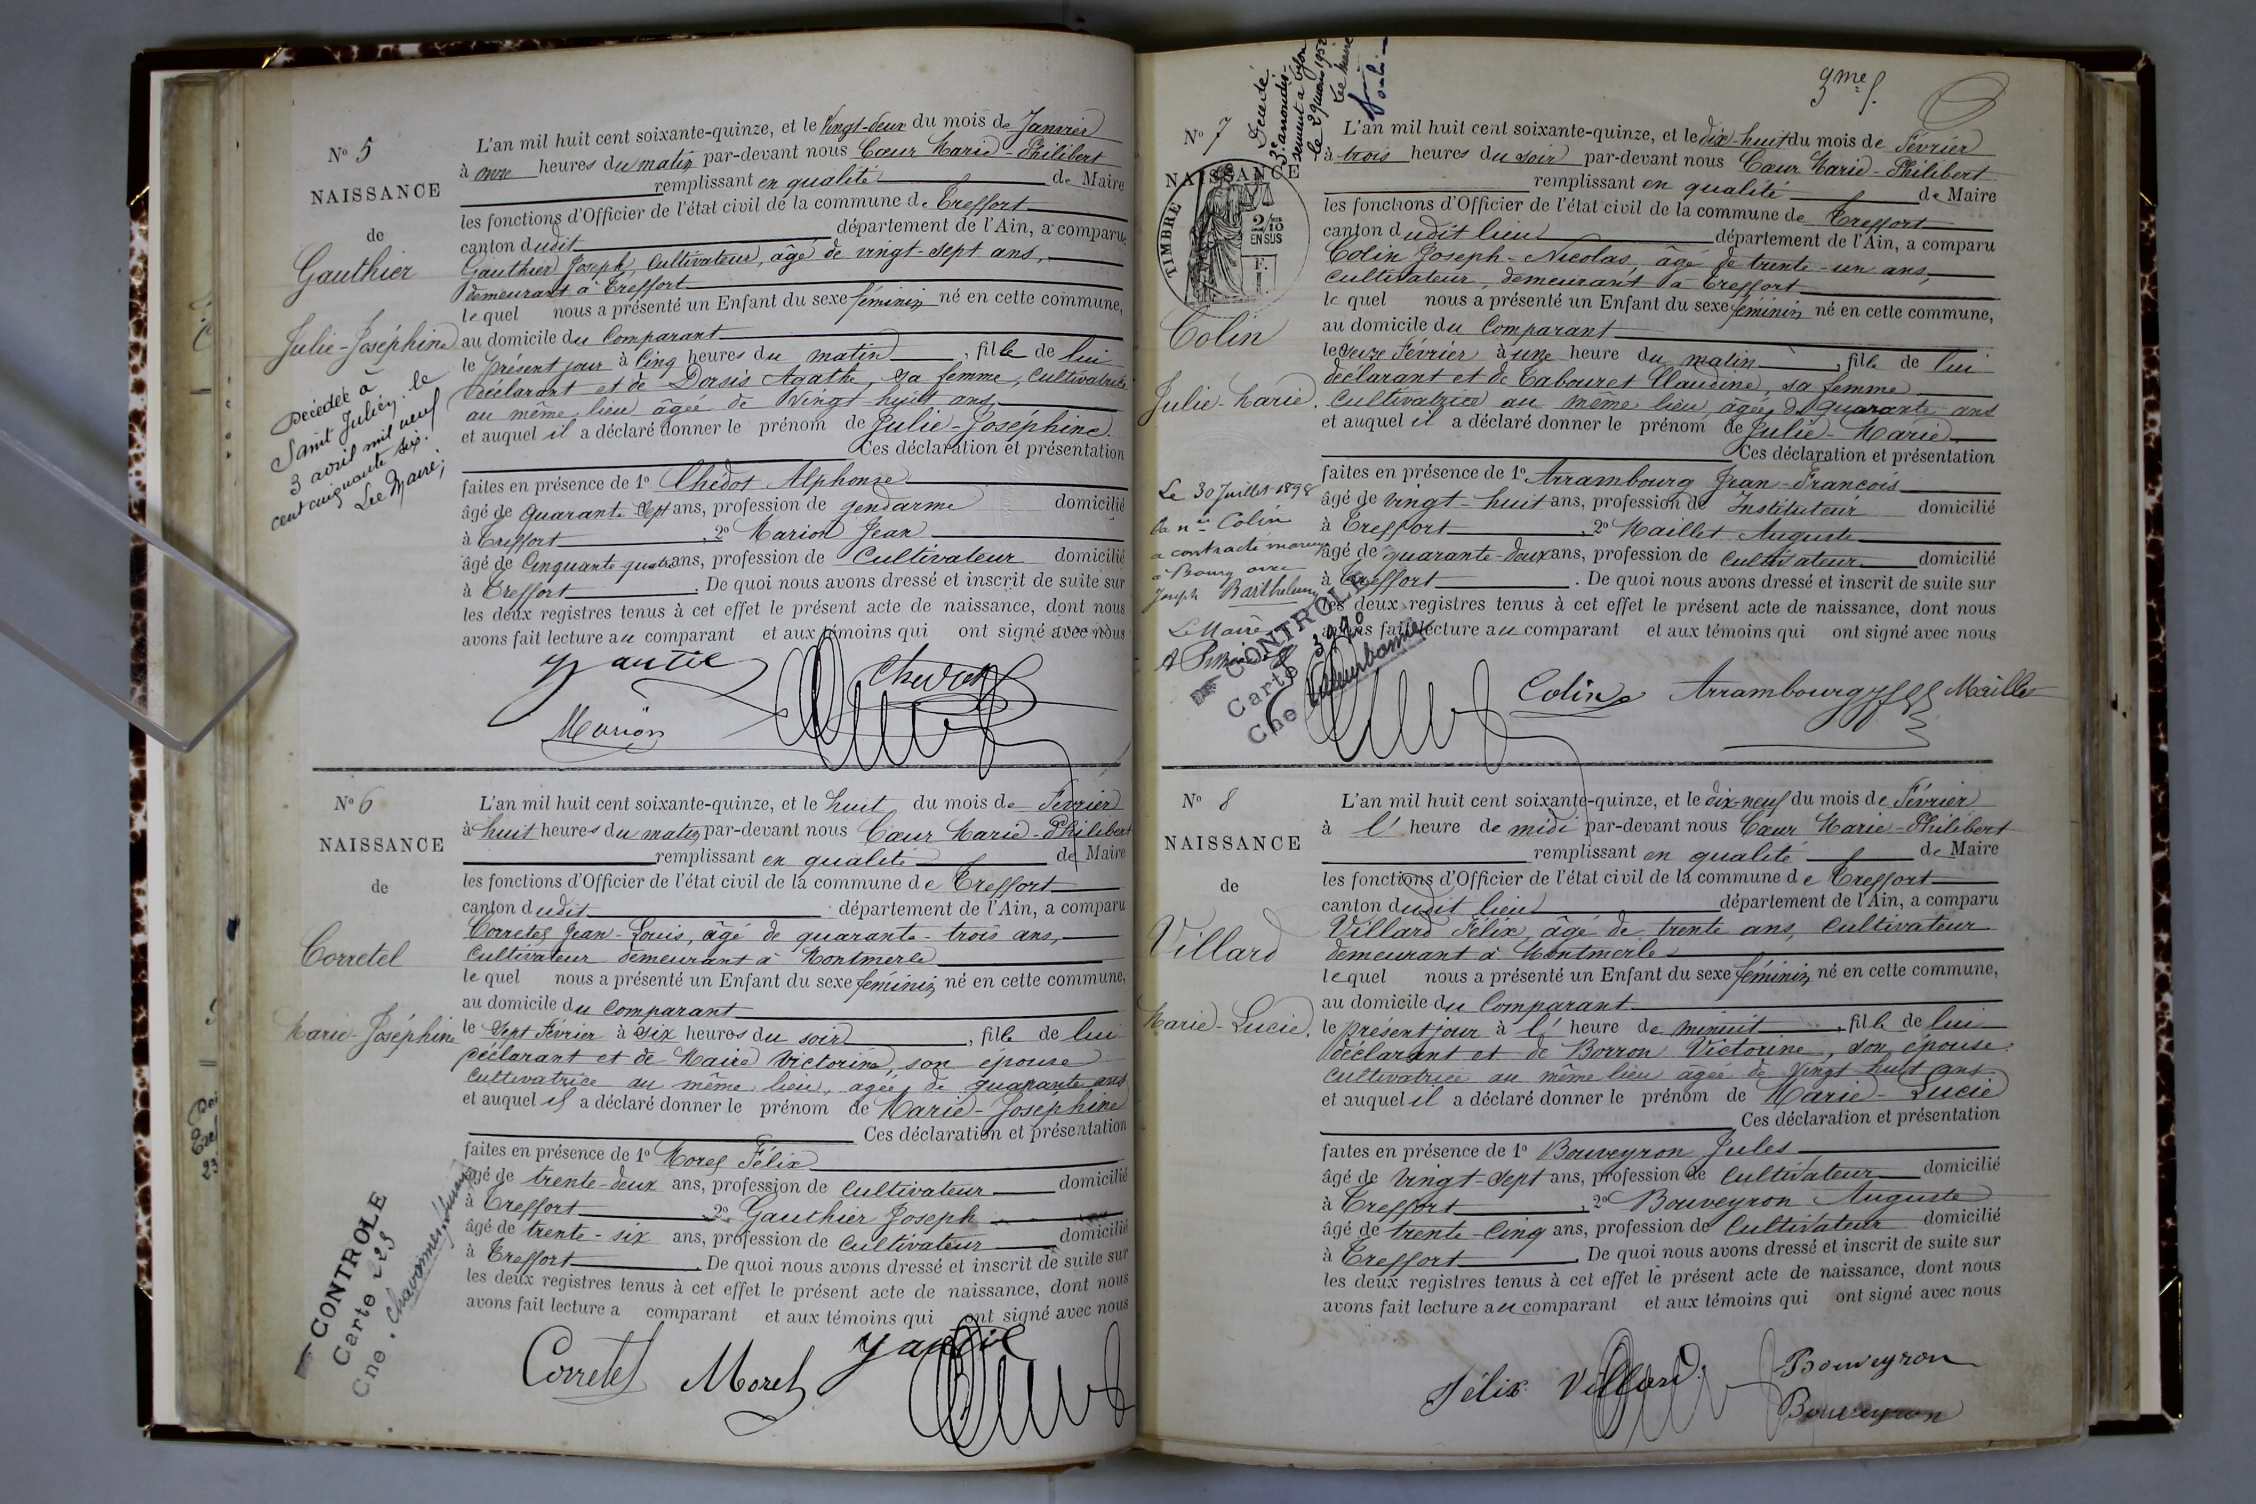 N° 5
NAISSANCE
de
Gauthier
Julie-Joséphine
Décédée à
Saint Julien le
3 avril mil neuf
cent cinquante six.
Le Maire,
L'an mil huit cent soixante-quinze, et le vingt-deux du mois de Janvier
à onze heures du matin par-devant nous Cœur Marie-Philibert
remplissant en qualité de Maire
les fonctions d'Officier de l'état civil de la commune de Treffort
canton dudit département de l'Ain, a comparu
Gauthier Joseph, Cultivateur, âgé de vingt-sept ans,
demeurant à Treffort
lequel nous a présenté un Enfant du sexe féminin né en cette commune,
au domicile du Comparant
le présent jour à cinq heures du matin, fille de lui
déclarant et de Dorsis Agathe, sa femme, Cultivatrice
au même lieu âgée de vingt huit ans,
et auquel il a déclaré donner le prénom de Julie-Joséphine.
Ces déclaration et présentation
faites en présence de 1° Chedot Alphonse
âgé de quarante sept ans, profession de gendarme domicilié
à Treffort, 2° Marion Jean
âgé de Cinquante-quatre ans, profession de Cultivateur domicilié
à Treffort. De quoi nous avons dressé et inscrit de suite sur
les deux registres tenus à cet effet le présent acte de naissance, dont nous
avons fait lecture au comparant et aux témoins qui ont signé avec nous
Marion
N° 6
NAISSANCE
de
Corretel
Marie-Joséphine
CONTROLE
Carte 223
Cne
L'an mil huit cent soixante-quinze, et le huit du mois de Février
à huit heures du matin par-devant nous Cœur Marie-Philibert
remplissant en qualité de Maire
les fonctions d'Officier de l'état civil de la commune de Treffort
canton dudit département de l'Ain, a comparu
Corretel Jean-Louis, âgé de quarante-trois ans,
Cultivateur demeurant à Montmerle
lequel nous a présenté un Enfant du sexe féminin né en cette commune,
au domicile du Comparant
le sept Février à six heures du soir, fille de lui
déclarant et de Maire Victorine, son épouse
Cultivatrice au même lieu, agée de quarante ans
et auquel il a déclaré donner le prénom de Marie-Joséphine
Ces déclaration et présentation
faites en présence de 1° Morel Félix
âgé de trente-deux ans, profession de Cultivateur domicilié
à Treffort 2° Gauthier Joseph
âgé de trente-six ans, profession de Cultivateur domicilié
à Treffort. De quoi nous avons dressé et inscrit de suite sur
les deux registres tenus à cet effet le présent acte de naissance, dont nous
avons fait lecture a comparant et aux témoins qui ont signé avec nous
Corretel Morel
9me f.
N° 7
NAISSANCE
TIMBRE
2/10
EN SUS
Décédée
3e arrondis-
sement à Lyon
le 29 mars 1952
Le Maire
Colin
Julie-Marie.
Le 30 Juillet 1898
la née Colin
a contracté mariage
à Bourg avec
Joseph Barthelemy
Le Maire
CONTROLE
Carte 3990
Cne Villeurbanne
L'an mil huit cent soixante-quinze, et le dix-huit du mois de Février
à trois heures du soir par-devant nous Cœur Marie-Philibert
remplissant en qualité de Maire
les fonctions d'Officier de l'état civil de la commune de Treffort
canton dudit lieu département de l'Ain, a comparu
Colin Joseph-Nicolas âgé de trente-un ans,
Cultivateur, demeurant à Treffort
lequel nous a présenté un Enfant du sexe féminin né en cette commune,
au domicile du Comparant
le seize Février à une heure du matin, fille de lui
déclarant et de Tabouret Claudine, sa femme
Cultivatrice au même lieu, âgée de quarante ans
et auquel il a déclaré donner le prénom de Julie-Marie.
Ces déclaration et présentation
faites en présence de 1° Arrambourg Jean-François
âgé de vingt-huit ans, profession de Instituteur domicilié
à Treffort, 2° Maillet Auguste
âgé de quarante-deux ans, profession de Cultivateur domicilié
à Treffort. De quoi nous avons dressé et inscrit de suite sur
les deux registres tenus à cet effet le présent acte de naissance, dont nous
avons fait lecture au comparant et aux témoins qui ont signé avec nous
Colin Arrambourg Maillet
N° 8
NAISSANCE
de
Villard
Marie-Lucie.
L'an mil huit cent soixante-quinze, et le dix-neuf du mois de Février
à l'heure de midi par-devant nous Cœur Marie-Philibert
remplissant en qualité de Maire
les fonctions d'Officier de l'état civil de la commune de Treffort
canton dudit lieu département de l'Ain, a comparu
Villard Félix, âgé de trente ans, Cultivateur
demeurant à Montmerle
lequel nous a présenté un Enfant du sexe féminin né en cette commune,
au domicile du Comparant
le présent jour à l'heure de minuit, fille de lui
déclarant et de Borron Victorine, son épouse
Cultivatrice au même lieu âgée de vingt huit ans
et auquel il a déclaré donner le prénom de Marie-Lucie
Ces déclaration et présentation
faites en présence de 1° Bouveyron Jules
âgé de vingt-sept ans, profession de Cultivateur domicilié
à Treffort, 2° Bouveyron Auguste
âgé de trente-cinq ans, profession de Cultivateur domicilié
à Treffort. De quoi nous avons dressé et inscrit de suite sur
les deux registres tenus à cet effet le présent acte de naissance, dont nous
avons fait lecture au comparant et aux témoins qui ont signé avec nous
Félix Villard. Bouveyron
Bouveyron